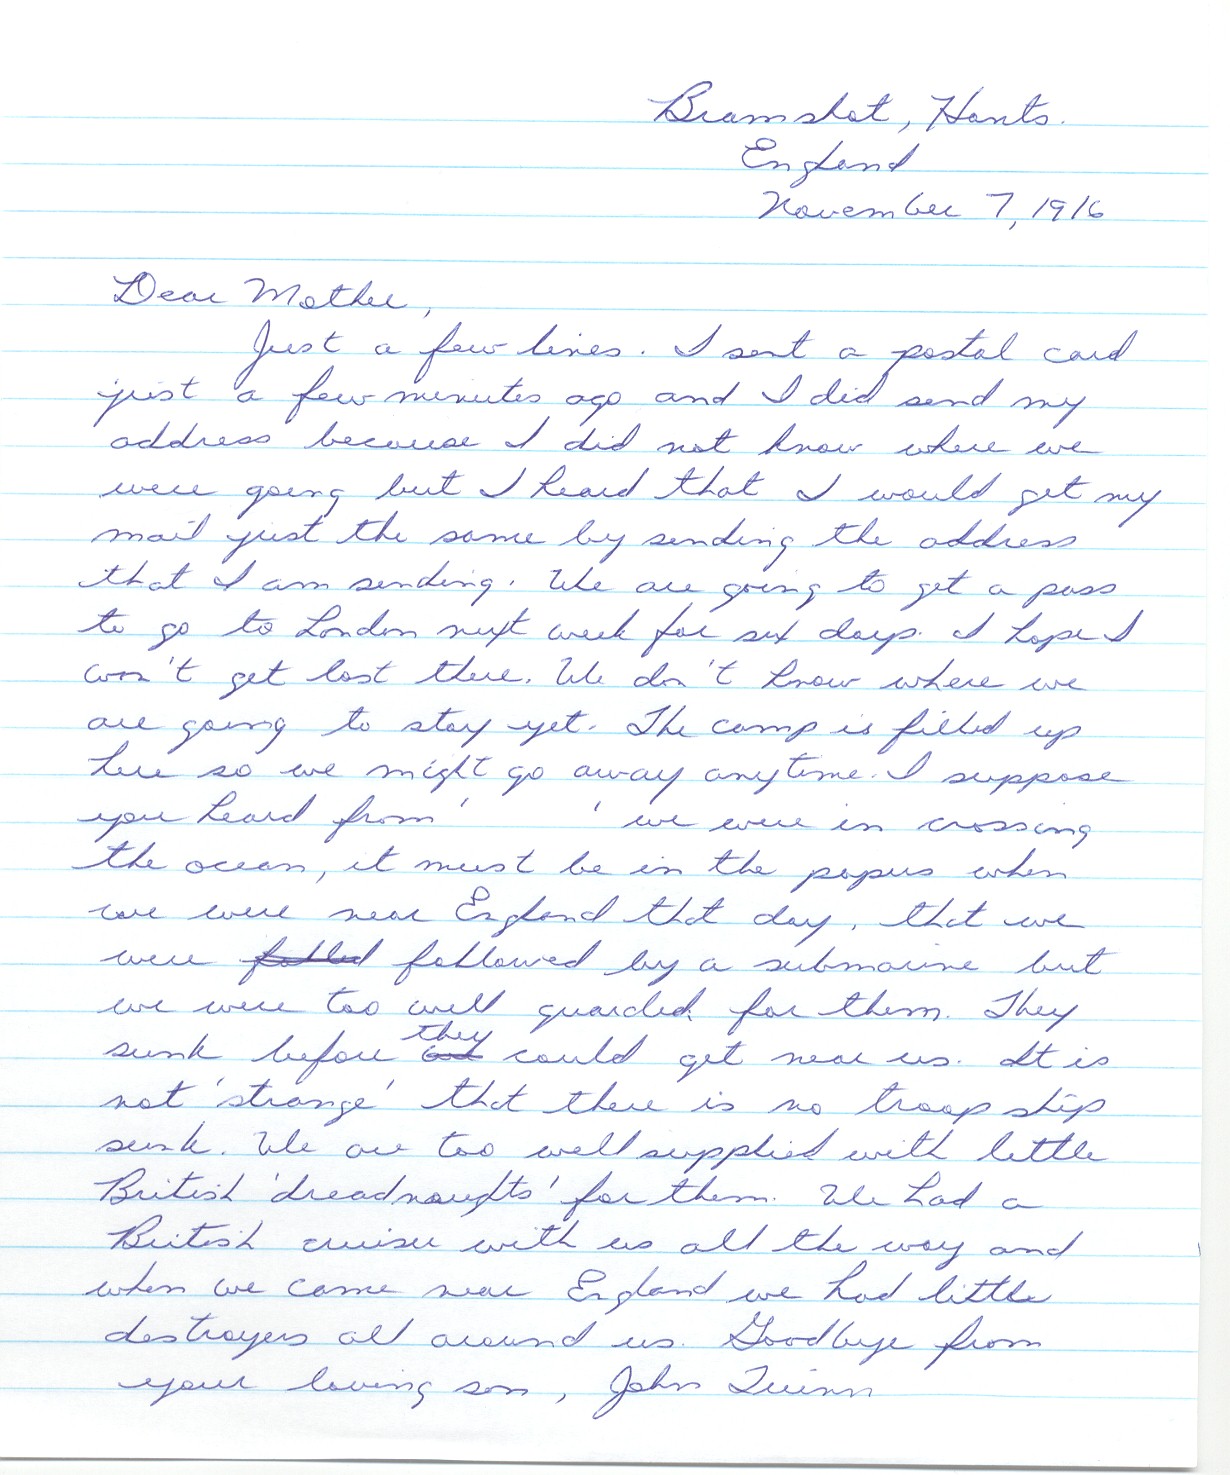 Bramshot, Hants.
England
November 7, 1916
Dear Mother,
Just a few lines. I sent a postal card
just a few minutes ago and I did send my
address because I did not know where we
were going but I heard that I would get my
mail just the same by sending the address
that I am sending. We are going to get a pass
to go to London next week for six days. I hope I
won't get lost there. We don't know where we
are going to stay yet. The camp is filled up
here so we might go away anytime. I suppose
you heard from ' ' we were in crossing
the ocean, it must be in the papers when
we were near England that day, that we
were follled followed by a submarine but
we were too well guarded for them. They
sunk before they could get near us. It is
not 'strange' that there is no troop ship
sunk. We are too well supplied with little
British 'dreadnoughts' for them. We had a
British cruiser with us all the way and
when we came near England we had little
destroyers all around us. Goodbye from
your loving son, John Quinn